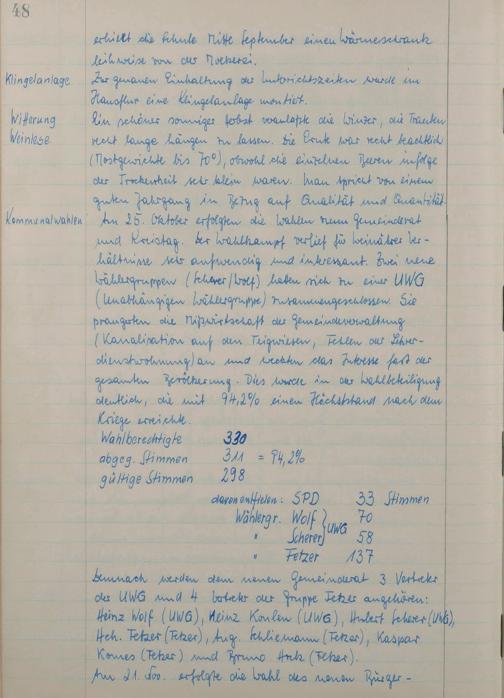 48
erhielt die Schule Mitte September einen Wärmeschrank
leihweise von der Molkerei.
Klingelanlage. Zur genauen Einhaltung der Unterrichtszeiten wurde im
Hausflur eine Klingelanlage montiert.
Witterung Ein schöner sonniger Herbst veranlaßte die Winzer, die Trauben
Weinlese recht lange hängen zu lassen. Die Ernte war recht beachtlich
(Mostgewichte bis 70°), obwohl die einzelnen Beeren infolge
der Trockenheit sehr klein waren. Man spricht von einem
guten Jahrgang in Bezug auf Qualität und Quantität.
Kommunalwahlen Am 25. Oktober erfolgten die Wahlen zum Gemeinderat
und Kreistag. Der Wahlkampf verlief für Weinährer Ver-
hältnisse sehr aufwendig und interessant. Zwei neue
Wählergruppen (Scherer/Wolf) haben sich zu einer UWG
(Unabhängigen Wählergruppe) zusammengeschlossen. Sie
prangerten die Mißwirtschaft der Gemeindeverwaltung
(Kanalisation auf den Teigwiesen, Fehlen der Lehrer-
dienstwohnung) an und weckten das Interesse fast der
gesamten Bevölkerung. Dies wurde in der Wahlbeteiligung
deutlich, die mit 94,2% einen Höchststand nach dem
Kriege erreichte.
Wahlberechtigte 330
abgeg. Stimmen 311 = 94,2%
gültige Stimmen 298
davon entfielen: SPD 33 Stimmen
Wählergr. Wolf } UWG 70
" Scherer 58
" Fetzer 137
Demnach werden dem neuen Gemeinderat 3 Vertreter
der UWG und 4 Vertreter der Gruppe Fetzer angehören:
Heinz Wolf (UWG), Heinz Konlen (UWG), Hubert Scherer (UWG),
Hch. Fetzer (Fetzer), Aug. Schliemann (Fetzer), Kaspar
Komes (Fetzer) und Bruno (Fetzer).
Am 21. Nov. erfolgte die Wahl des neuen Bürger-